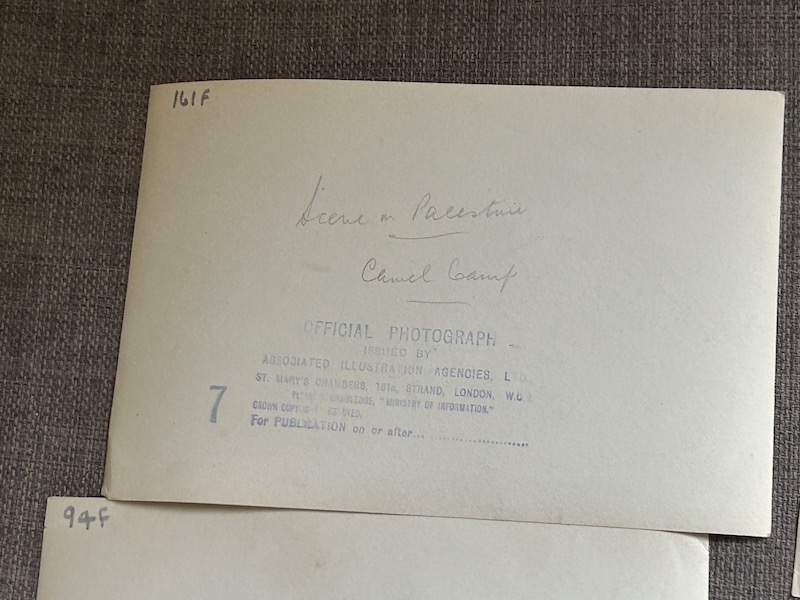 161F
Scene in Palestine
Camel Camp
OFFICIAL PHOTOGRAPH
ISSUED BY
ASSOCIATED ILLUSTRATION AGENCIES, LTD.
ST. MARY'S CHAMBERS, 161a, STRAND, LONDON, W.C.
"MINISTRY OF INFORMATION."
7
CROWN
For PUBLICATION on or after...
94F